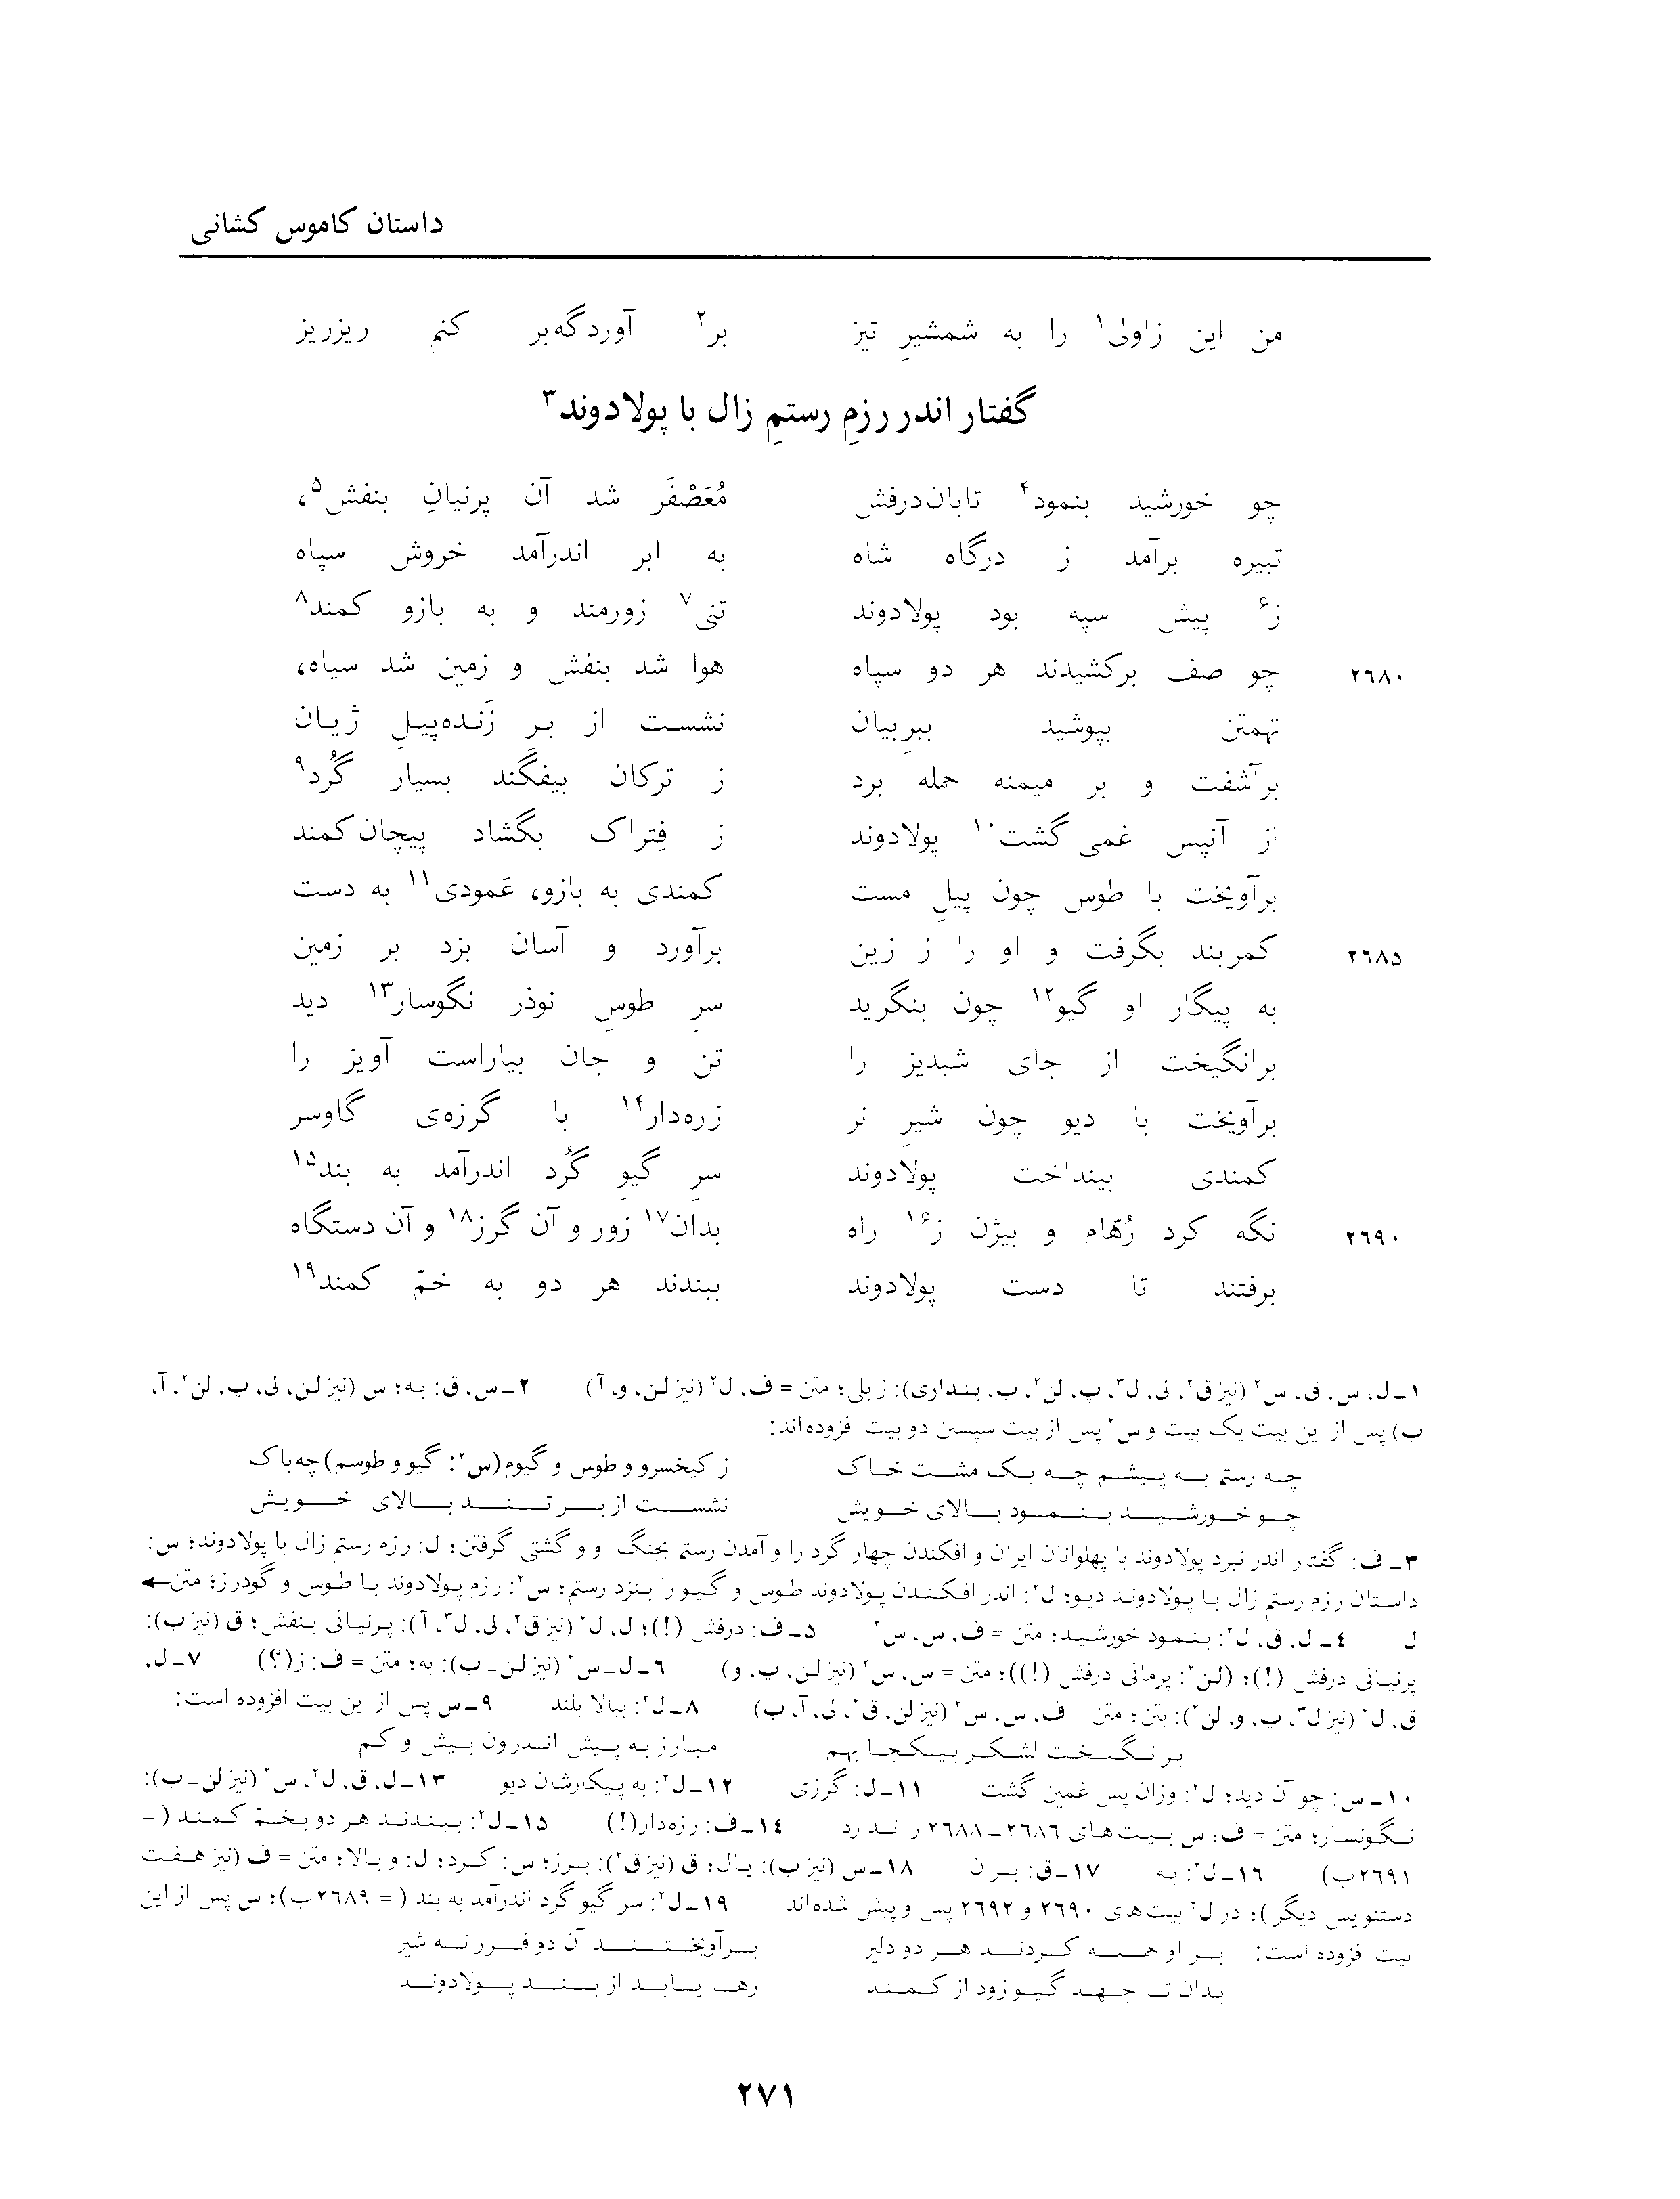 داستان کاموس کشانی
من این زاولی۱ را به شمشیرِ تیز بر۲ آوردگه‌بر کنم ریزریز
گفتار اندر رزمِ رستمِ زال با پولادوند۳
چو خورشید بنمود۴ تابان‌درفش مُعَصْفَر شد آن پرنیانِ بنفش۵،
تبیره برآمد ز درگاه شاه به ابر اندرآمد خروش سپاه
ز۶ پیش سپه بود پولادوند تنی۷ زورمند و به بازو کمند۸
۲۶۸۰ چو صف برکشیدند هر دو سپاه هوا شد بنفش و زمین شد سیاه،
تهمتن بپوشید ببرِبیان نشست از بر زَنده‌پیلِ ژیان
برآشفت و بر میمنه حمله برد ز ترکان بیفگند بسیار گُرد۹
از آنپس غمی گشت۱۰ پولادوند ز فِتراک بگشاد پیچان‌کمند
برآویخت با طوس چون پیلِ مست کمندی به بازو، عَمودی۱۱ به دست
۲۶۸۵ کمربند بگرفت و او را ز زین برآورد و آسان بزد بر زمین
به پیگار او گیو۱۲ چون بنگرید سرِ طوسِ نوذر نگوسار۱۳ دید
برانگیخت از جای شبدیز را تن و جان بیاراست آویز را
برآویخت با دیو چون شیرِ نر زره‌دار۱۴ با گرزه‌ی گاوسر
کمندی بینداخت پولادوند سرِ گیوِ گُرد اندرآمد به بند۱۵
۲۶۹۰ نگه کرد رُهّام و بیژن ز۱۶ راه بدان۱۷ زور و آن گرز۱۸ و آن دستگاه
برفتند تا دست پولادوند ببندند هر دو به خمّ کمند۱۹
۱ـ ل، س، ق، س۲ (نیز ق۲، لی، ل۳، پ، لن۲، ب، بنداری): زابلی؛ متن = ف، ل۲ (نیز لن، و، آ) ۲ـ س، ق: به؛ س (نیز لن، لی، پ، لن۲، آ،
ب) پس از این بیت یک بیت و س۲ پس از بیت سپسین دو بیت افزوده‌اند:
چه رستم به پیشم چه یک مشت خاک ز کیخسرو و طوس و گیوم (س۲: گیو و طوسم) چه باک
چو خورشید بنمود بالای خویش نشست از بر تند بالای خویش
۳ـ ف: گفتار اندر نبرد پولادوند با پهلوانان ایران و افکندن چهار گرد را و آمدن رستم بجنگ او و گشتی گرفتن؛ ل: رزم رستم زال با پولادوند؛ س:
داستان رزم رستم زال با پولادوند دیو؛ ل۲: اندر افکندن پولادوند طوس و گیو را بنزد رستم؛ س۲: رزم پولادوند با طوس و گودرز؛ متن ←
ل ۴ـ ل، ق، ل۲: بنمود خورشید؛ متن = ف، س، س۲ ۵ـ ف: درفش (!)؛ ل، ل۲ (نیز ق۲، لی، ل۳، آ): پرنیانی بنفش؛ ق (نیز ب):
پرنیانی درفش (!)؛ (لن۲: پرمانی درفش (!))؛ متن = س، س۲ (نیز لن، پ، و) ۶ـ ل ـ س۲ (نیز لن ـ ب): به؛ متن = ف: ز(؟) ۷ـ ل،
ق، ل۲ (نیز ل۳، پ، و، لن۲): بتن؛ متن = ف، س، س۲ (نیز لن، ق۲، لی، آ، ب) ۸ـ ل۲: ببالا بلند ۹ـ س پس از این بیت افزوده است:
برانگیخت لشکر بیکجا بهم مبارز به پیش اندرون بیش و کم
۱۰ـ س: چو آن دید؛ ل۲: وزان پس غمین گشت ۱۱ـ ل: گرزی ۱۲ـ ل۲: به پیکارشان دیو ۱۳ـ ل، ق، ل۲، س۲ (نیز لن ـ ب):
نگونسار؛ متن = ف؛ س بیت‌های ۲۶۸۶ـ۲۶۸۸ را ندارد ۱۴ـ ف: رزه‌دار(!) ۱۵ـ ل۲: ببندند هر دو بخمّ کمند (=
۲۶۹۱ب) ۱۶ـ ل۲: به ۱۷ـ ق: بران ۱۸ـ س (نیز ب): یال؛ ق (نیز ق۲): برز؛ س: کرد؛ ل: و بالا؛ متن = ف (نیز هفت
دستنویس دیگر)؛ در ل۲ بیت‌های ۲۶۹۰ و ۲۶۹۲ پس و پیش شده‌اند ۱۹ـ ل۲: سر گیو گرد اندرآمد به بند (= ۲۶۸۹ب)؛ س پس از این
بیت افزوده است: بر او حمله کردند هر دو دلیر برآویختند آن دو فرزانه شیر
بدان تا جهد گیو زود از کمند رها یابد از بند پولادوند
۲۷۱